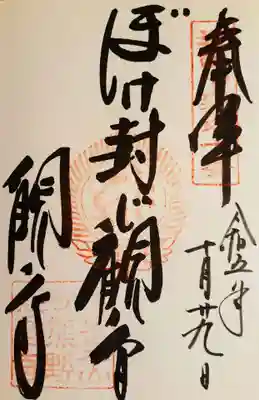 奉拝
令和五年
十月廿九日
ぼけ封じ観音
観音寺